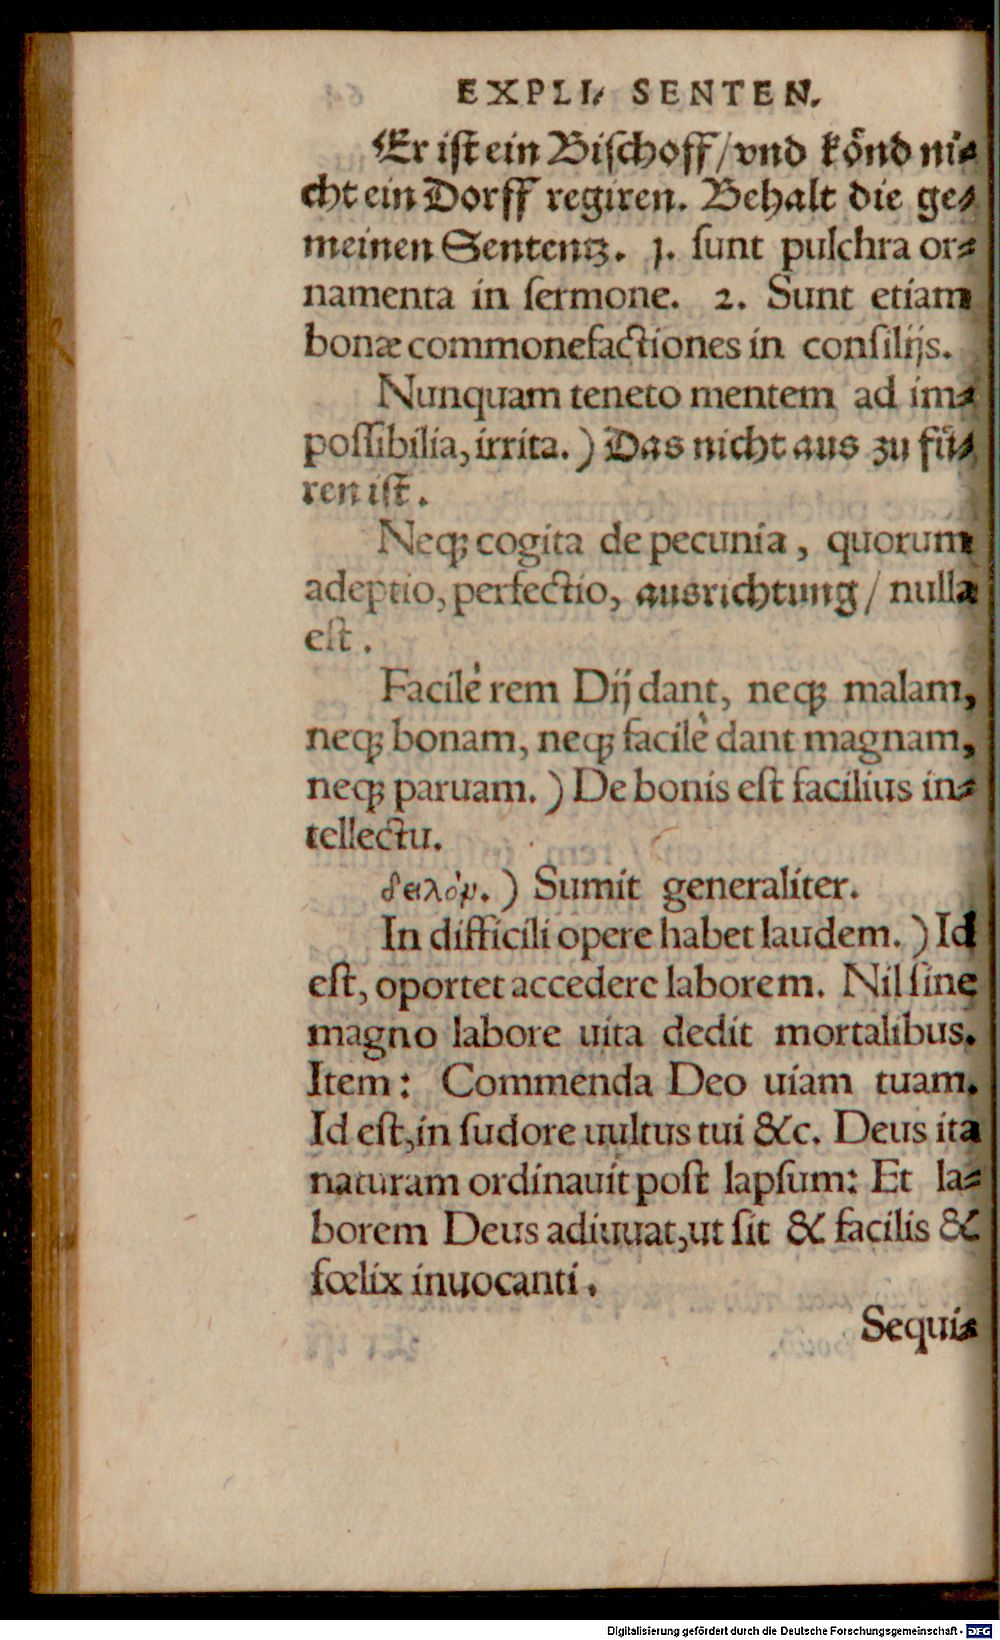 EXPLI. SENTEN.
Er iſt ein Biſchoff/vnd koͤnd ni⸗
cht ein Dorff regiren. Behalt die ge⸗
meinen Sententz. 1. ſunt pulchra or⸗
namenta in ſermone. 2. Sunt etiam
bonæ commonefactiones in conſilijs.
Nunquam teneto mentem ad im⸗
poſſibilia, irrita.) Das nicht aus zu fuͤ⸗
ren iſt.
Neqꝫ cogita de pecunia, quorum
adeptio, perfectio, ausrichtung/ nulla
eſt.
Facilè rem Dij dant, neqꝫ malam,
neqꝫ bonam, neqꝫ facilè dant magnam,
neqꝫ paruam.) De bonis eſt facilius in⸗
tellectu.
δειλόμ.) Sumit generaliter.
In difficili opere habet laudem.) Id
eſt, oportet accedere laborem. Nil ſine
magno labore uita dedit mortalibus.
Item: Commenda Deo uiam tuam.
Id eſt, in ſudore uultus tui &c. Deus ita
naturam ordinauit poſt lapſum: Et la⸗
borem Deus adiuuat, ut ſit & facilis &
fœlix inuocanti.
Sequi⸗
Digitalisierung gefördert durch die Deutsche Forschungsgemeinschaft - DFG